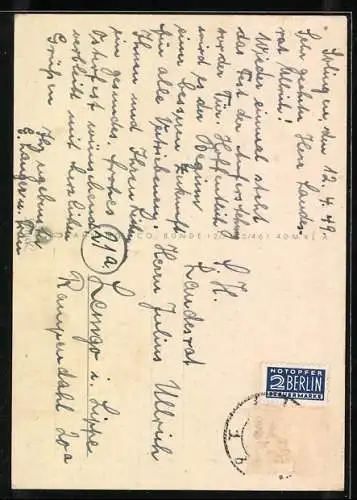 , den 12. 4. 49
Sehr geehrter Herr Landes-
rat Ullrich!
Wieder einmal steht
das Fest der Auferstehung
vor der Tür. Hoffentlich
wird es der Beginn
einer besseren Zukunft
für alle Vertriebenen.
Ihnen und Ihren Lieben
ein gesundes, frohes
Osterfest wünschend
verbleibt mit herzlichen
Grüßen
Ihr ergebener
G. Langer u. Frau
S. H.
Landesrat
Herrn Julius Ullrich
21a Lemgo i. Lippe
Rampendahl 20a
CO. BÜNDE
NOTOPFER
2 BERLIN
STEUERMARKE